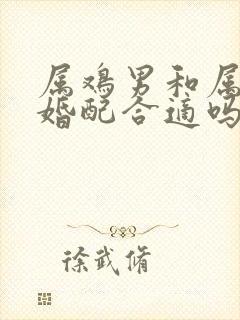 属鸡男和属
婚配合适吗
徐武脩